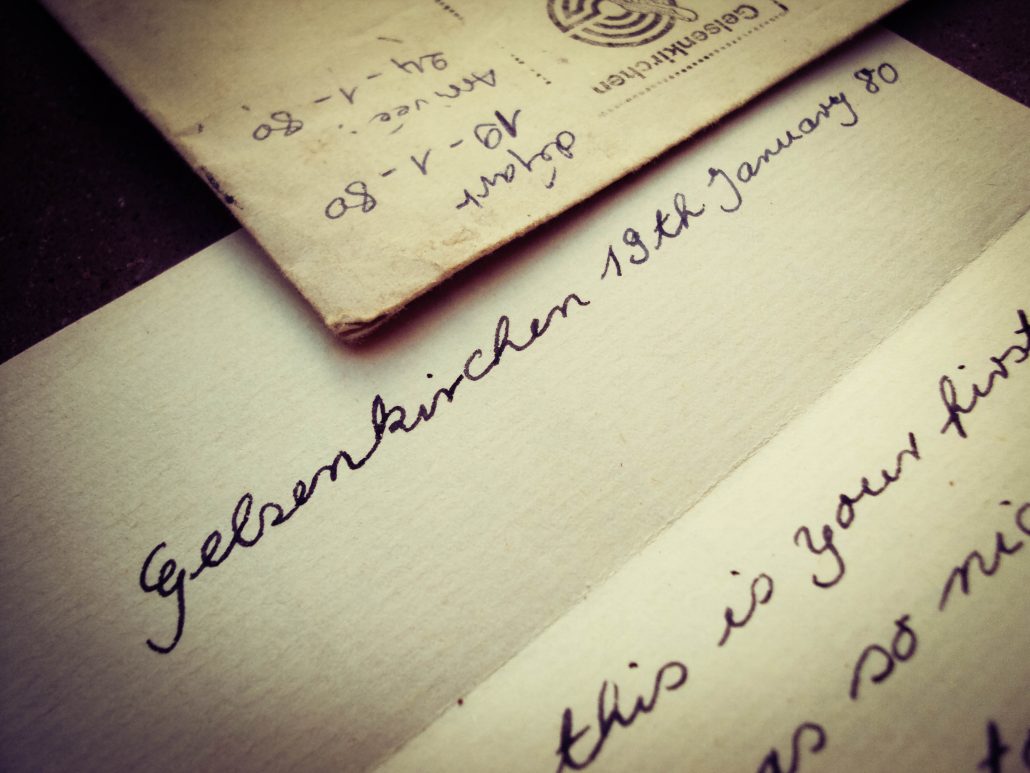 Gelsenkirchen
départ
19-1-80
Arrivée:
24-1-80.
Gelsenkirchen 19th January 80
this is your first
so